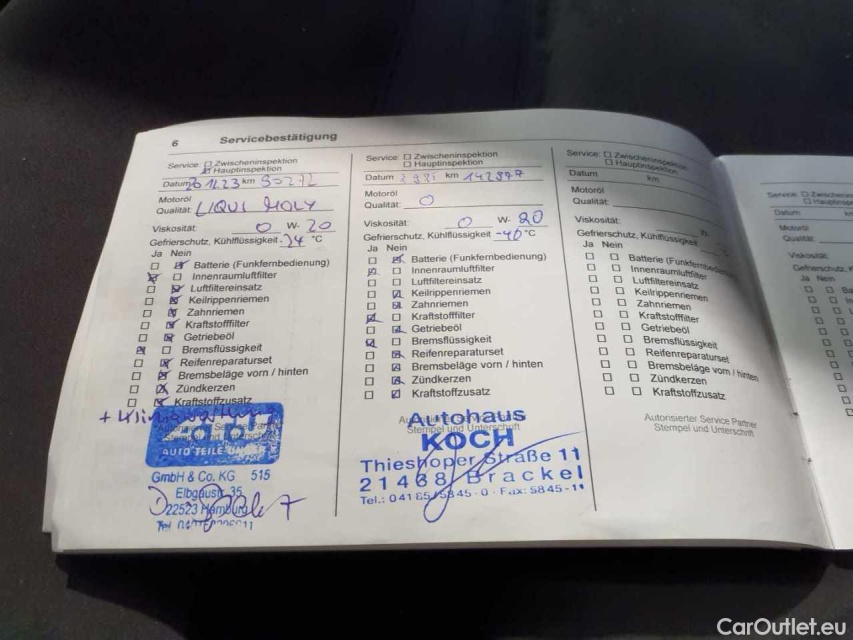 6 Servicebestätigung
Service: Zwischeninspektion
Hauptinspektion
Datum 20.11.23 km 90272
Motoröl
Qualität: LIQUI MOLY
Viskosität: 0 W- 20
Gefrierschutz, Kühlflüssigkeit °C
Ja Nein
Batterie (Funkfernbedienung)
Innenraumluftfilter
Luftfiltereinsatz
Keilrippenriemen
Zahnriemen
Kraftstofffilter
Getriebeöl
Bremsflüssigkeit
Reifenreparaturset
Bremsbeläge vorn / hinten
Zündkerzen
Kraftstoffzusatz
Autorisierter Service Partner
Stempel und Unterschrift
AUTO TEILE UNGER
GmbH & Co. KG 515
Elbgaustr. 35
22523 Hamburg
Service: Zwischeninspektion
Hauptinspektion
Datum km 142877
Motoröl
Qualität: 0
Viskosität: 0 W- 20
Gefrierschutz, Kühlflüssigkeit -40 °C
Ja Nein
Batterie (Funkfernbedienung)
Innenraumluftfilter
Luftfiltereinsatz
Keilrippenriemen
Zahnriemen
Kraftstofffilter
Getriebeöl
Bremsflüssigkeit
Reifenreparaturset
Bremsbeläge vorn / hinten
Zündkerzen
Kraftstoffzusatz
Stempel und Unterschrift
Autohaus
KOCH
Thieshoper Straße 11
21438 Brackel
Tel.: 04185/5845-0 · Fax: 5845-11
Service: Zwischeninspektion
Hauptinspektion
Datum km
Motoröl
Qualität:
Viskosität:
Gefrierschutz, Kühlflüssigkeit
Ja Nein
Batterie (Funkfernbedienung)
Innenraumluftfilter
Luftfiltereinsatz
Keilrippenriemen
Zahnriemen
Kraftstofffilter
Getriebeöl
Bremsflüssigkeit
Reifenreparaturset
Bremsbeläge vorn / hinten
Zündkerzen
Kraftstoffzusatz
Autorisierter Service Partner
Stempel und Unterschrift
Service:
Datum
Motoröl
Qualität:
Viskosität:
Ja Nein
CarOutlet.eu